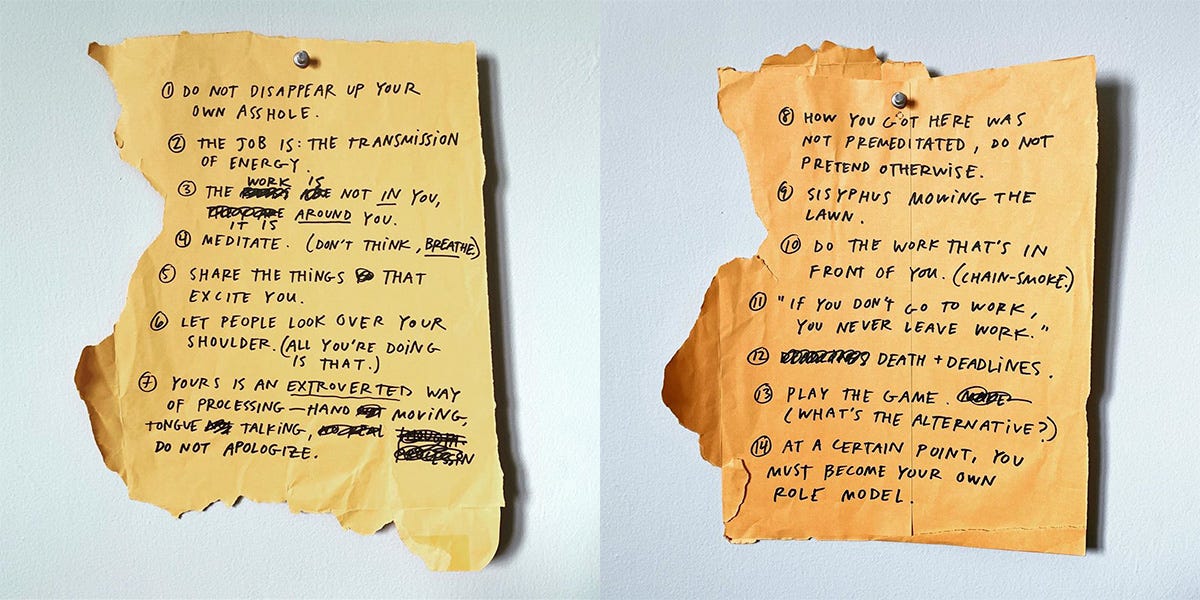 ① DO NOT DISAPPEAR UP YOUR
OWN ASSHOLE.
② THE JOB IS: THE TRANSMISSION
OF ENERGY.
WORK IS
③ THE NOT IN YOU,
AROUND YOU.
IT IS
④ MEDITATE. (DON'T THINK, BREATHE)
⑤ SHARE THE THINGS THAT
EXCITE YOU.
⑥ LET PEOPLE LOOK OVER YOUR
SHOULDER. (ALL YOU'RE DOING
IS THAT.)
⑦ YOURS IS AN EXTROVERTED WAY
OF PROCESSING — HAND MOVING,
TONGUE TALKING,
DO NOT APOLOGIZE.
⑧ HOW YOU GOT HERE WAS
NOT PREMEDITATED, DO NOT
PRETEND OTHERWISE.
⑨ SISYPHUS MOWING THE
LAWN.
⑩ DO THE WORK THAT'S IN
FRONT OF YOU. (CHAIN-SMOKE.)
⑪ "IF YOU DON'T GO TO WORK,
YOU NEVER LEAVE WORK."
⑫ DEATH + DEADLINES.
⑬ PLAY THE GAME.
(WHAT'S THE ALTERNATIVE?)
⑭ AT A CERTAIN POINT, YOU
MUST BECOME YOUR OWN
ROLE MODEL.